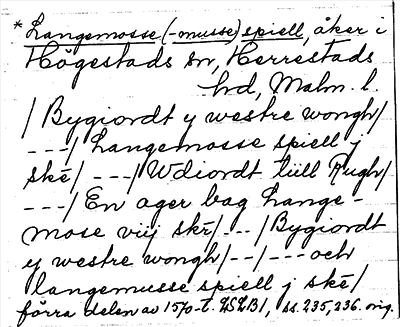 * Langemosse (-musse) spiell, åker i
Högestads sn, Herrestads
hd, Malm. l.
/ Bygiordt y westre wongh/
---/ Langemosse spiell j
skē/ ---/ Wdiordt tüll Rugh/
---/ En ager bag Lange-
mose viij skr/ --/ Bygiordt
y westre wongh/ --/ --- och
langemusse spiell j skē/
förra delen av 1570-t. LSLB1, ss. 235, 236. orig.